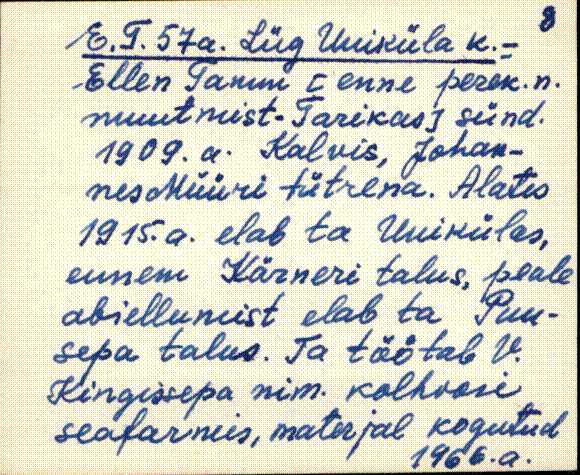 8
E.T. 57a. Lüg Uniküla k. =
Ellen Tamm [enne perek. n.
muutmist - Tarikas] sünd.
1909. a. Kalvis, Johan-
nes Müüri tütrena. Alates
1915. a. elab ta Unikülas,
ennem Kärneri talus, peale
abiellumist elab ta Puu-
sepa talus. Ta töötab V.
Kingissepa nim. kolhoosi
seafarmis, materjal kogutud
1966. a.